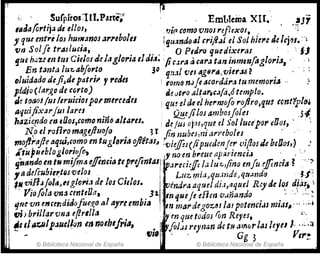 Suspiros. III. Parte,
eada fortija de ellos,
y que entre los humanos arreboles
vn Sol se traslucia,
que haze en tus Cielos de la gloria el dia.
En tanta luz absorto 30
oluidado de si, de patria y redes
pidio (largo de corto)
de todos sus seruicios por mercedes
aqui fixar sus lares
haziendo en ellos, como niño altares.
No el rostro magestuoso 31
mostraste aqui, como en tu gloria ostentas,
a tu pueblo glorioso,
quando en tu misma essencia te presentas
y a descubiertos velos
tu vista sola, es gloria de los Cielos.
Vio sola vna centella, 32
que vn encendido fuego al ayre embia
vio brillar vna estrella
de el azul pauellon en noche fria,
vio
Emblema XII. 237
vio como vnos reflexos,
quando al cristal el Sol hiere de lejos.
O Pedro que dixeras 33
si cara à cara tan inmensa gloria,
qual ves agora, vieras?
como no se acordàra tu memoria
de otro altar, casa, ó templo.
que el de el hermoso rostro, que contẽplo.
Que si los ambos soles 34
de sus ojos, que el Sol luce por ellos,
sin nubes, ni arreboles
viesses (si pueden ser vistos de bellos,)
y no en breue apariencia
pareciesse la luz, sino en su essencia?
Luz mia, quando, quando 35
vendra aquel dia, aquel Rey de los dias,
en que se estèn vañando
en mar de gozos las potencias mias,
y en que todos son Reyes,
y solas reynan de tu amor las leyes!
Gg 3
Ver-
© Biblioteca Nacional de España
© Biblioteca Nacional de España